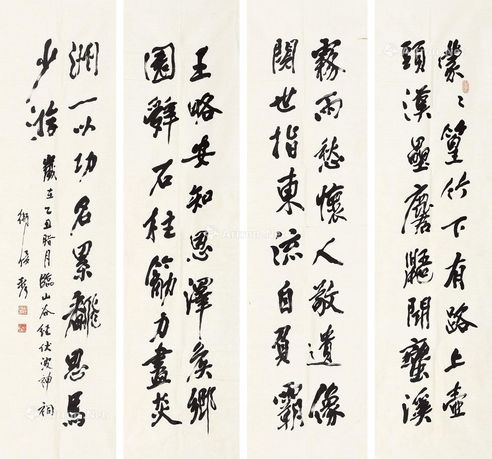 蒙〻篁竹下有路上壺
頭漢壘麏鼯鬭蠻溪
霧雨愁懷人敬遺像
閱世指東流自負霸
王略安知恩澤矦鄉
園辭石柱筋力盡炎
洲一以功名累翻思馬
少游
歲在乙丑臘月臨山谷經伏波神祠
衛俊秀